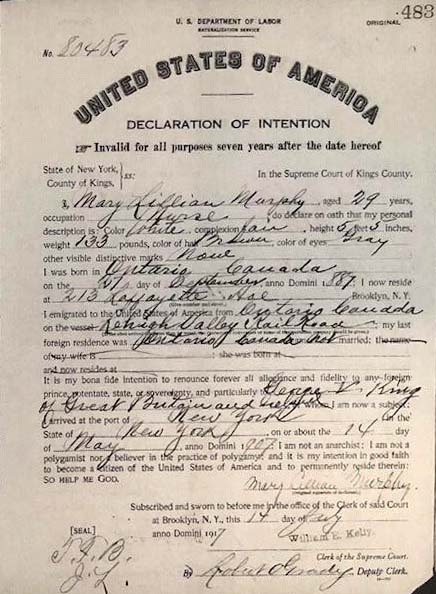 U. S. DEPARTMENT OF LABOR
NATURALIZATION SERVICE
ORIGINAL
483
No. 80483
UNITED STATES OF AMERICA
DECLARATION OF INTENTION
Invalid for all purposes seven years after the date hereof
State of New York,
County of Kings,
ss:
In the Supreme Court of Kings County.
I, Mary Lillian Murphy, aged 29 years,
occupation Nurse, do declare on oath that my personal
description is: Color White, complexion fair, height 5 feet 3 inches,
weight 133 pounds, color of hair Brown, color of eyes Gray
other visible distinctive marks None
I was born in Ontario Canada
on the day of September, anno Domini 1887; I now reside
at 213 Lafayette Ave Brooklyn, N. Y.
I emigrated to the United States of America from Ontario Canada
on the vessel Lehigh Valley Rail Road; my last
foreign residence was Ontario Canada not married: the name
of my wife is ; she was born at
and now resides at
It is my bona fide intention to renounce forever all allegiance and fidelity to any foreign
prince, potentate, state, or sovereignty, and particularly to George V King
of Great Britain and Ireland of whom I am now a subject
I arrived at the port of New York, in the
State of New York, on or about the 14 day
of May, anno Domini 1907; I am not an anarchist; I am not a
polygamist nor a believer in the practice of polygamy; and it is my intention in good faith
to become a citizen of the United States of America and to permanently reside therein:
SO HELP ME GOD.
Mary Lillian Murphy
Subscribed and sworn to before me in the office of the Clerk of said Court
at Brooklyn, N. Y., this 14 day of July
anno Domini 1917
[SEAL]
William E. Kelly
Clerk of the Supreme Court.
By Robert Grady, Deputy Clerk.